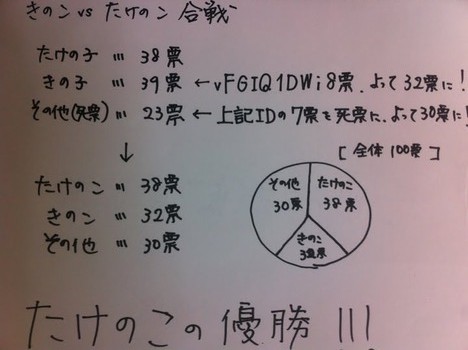 きのコ vs たけのコ 合戦
たけの子 … 38票
きの子 … 39票 ← vFGIQ1DWi8票、よって32票に!
その他(死票) … 23票 ← 上記IDの7票を死票に、よって30票に!
↓
[全体100票]
たけのコ … 38票
きのコ … 32票
その他 … 30票
その他
30票
たけのこ
38票
きのこ
32票
たけのこの優勝!!!